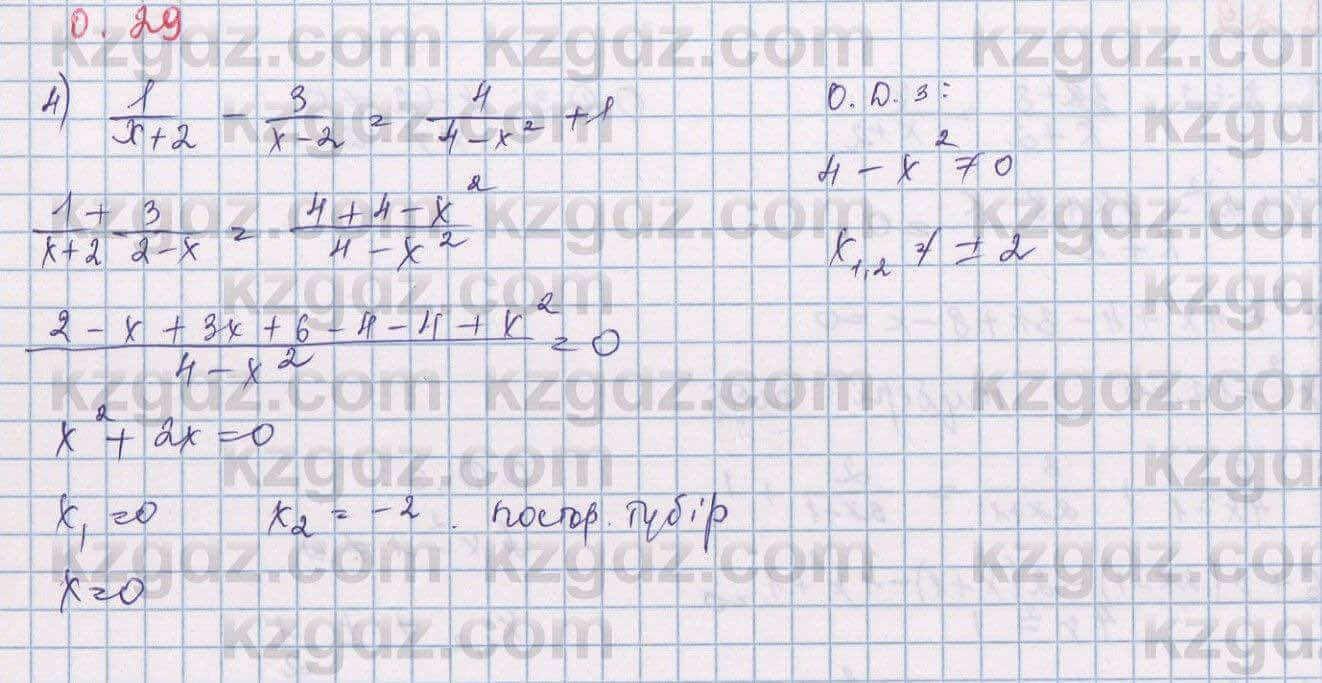 0.29
4) 1/(x+2) - 3/(x-2) = 4/(4-x²) + 1
О.Д.З:
4 - x² ≠ 0
x₁,₂ ≠ ± 2
1/(x+2) + 3/(2-x) = (4+4-x²)/(4-x²)
(2-x+3x+6-4-4+x²)/(4-x²) = 0
x² + 2x = 0
x₁ = 0 x₂ = -2 . постор. түбір
x = 0
kzgdz.com